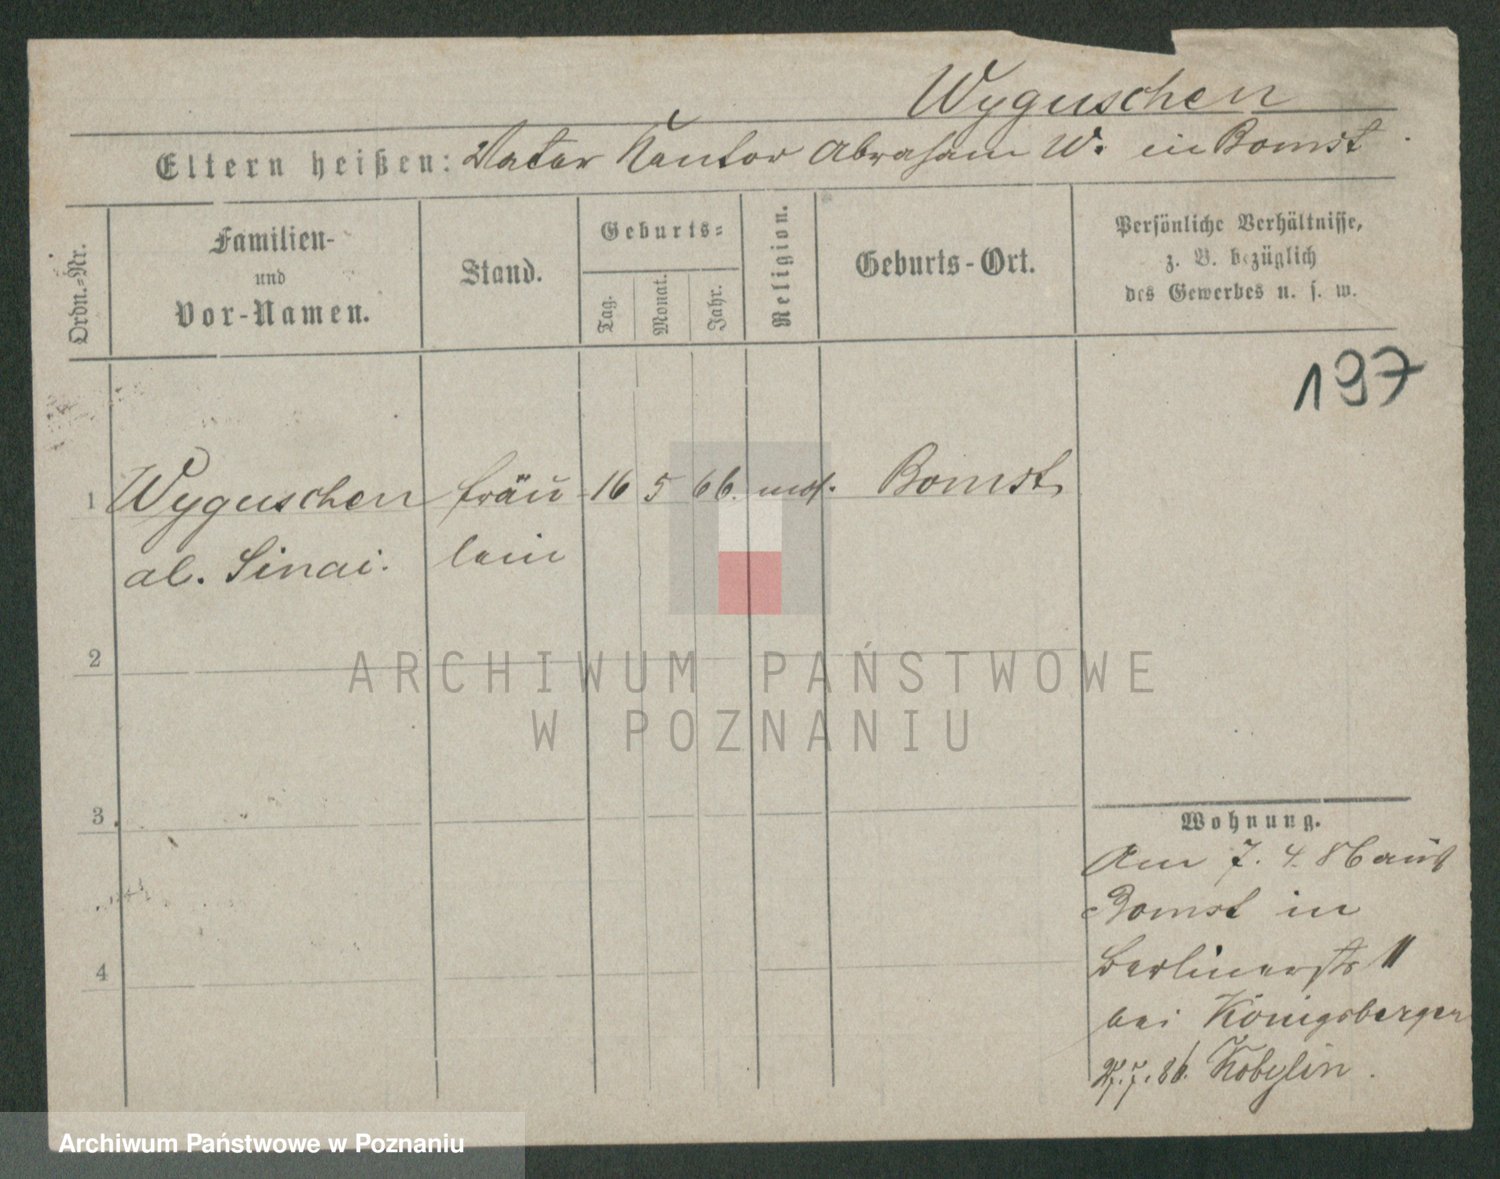 Wyguschen
Eltern heißen: Vater Kantor Abraham W. in Bomst
Ordn.-Nr.
Familien-
und
Vor-Namen.
Stand.
Geburts-
Tag.
Monat.
Jahr.
Religion.
Geburts-Ort.
Persönliche Verhältnisse,
z. B. bezüglich
des Gewerbes u. s. w.
197
1 Wyguschen fräu 16 5 66. mos. Bomst
al. Sinai. lein
2
3
4
Wohnung.
Am 7. 4. 86 aus
Bomst in
Berlinerstr 11
bei Königsberger
7. 86. Kobylin.
ARCHIWUM PAŃSTWOWE
W POZNANIU
Archiwum Państwowe w Poznaniu